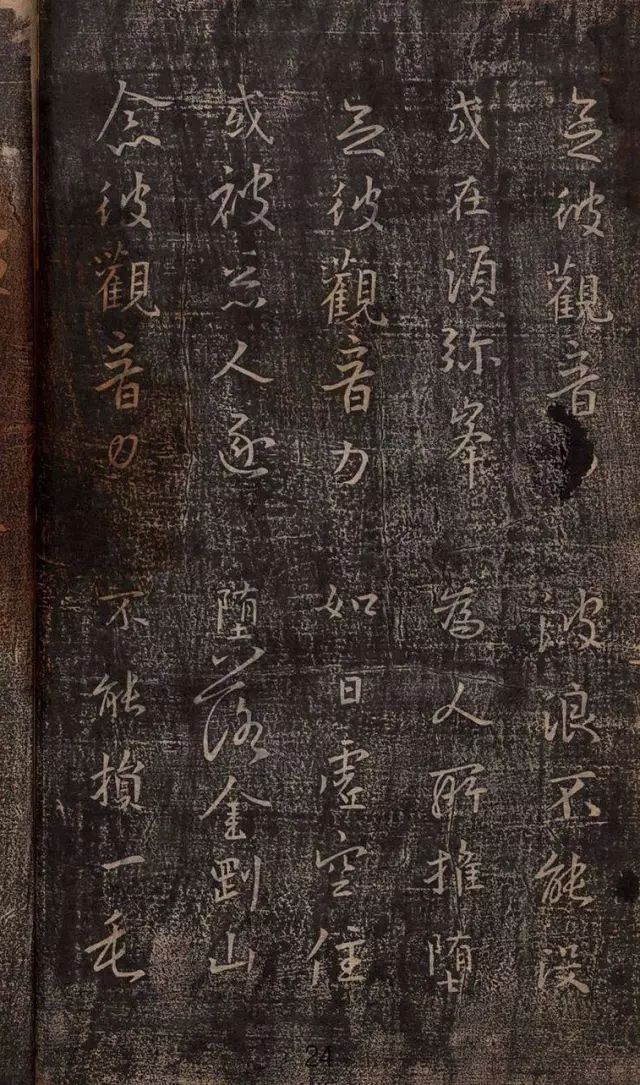 念彼觀音力 波浪不能没
或在須弥峯 為人所推堕
念彼觀音力 如日虚空住
或被惡人逐 堕落金剛山
念彼觀音力 不能損一毛
24